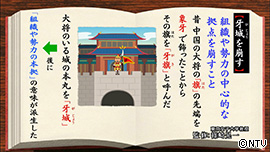 【牙城を崩す】
組織や勢力の中心的な
拠点を崩すこと
昔 中国の大将の“旗”の先端を
象牙で飾ったことから
その旗を「牙旗」と呼んだ
大将のいる城の本丸を「牙城」
後に
「組織や勢力の本拠」の意味が派生した
©NTV